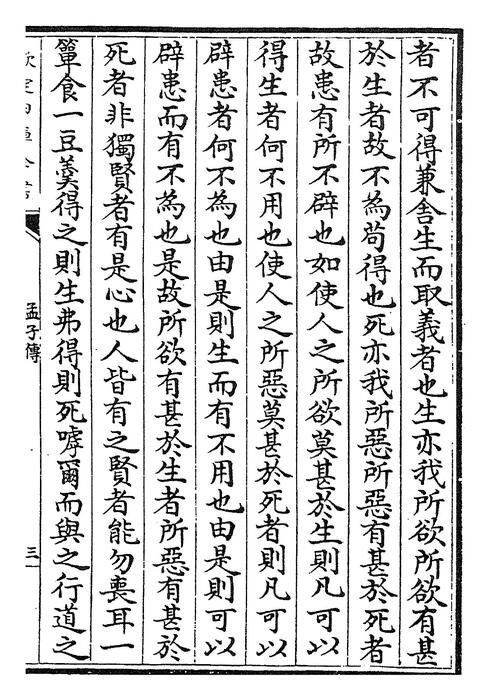 者不可得兼舎生而取義者也生亦我所欲所欲有甚
於生者故不為苟得也死亦我所惡所惡有甚於死者
故患有所不辟也如使人之所欲莫甚於生則凡可以
得生者何不用也使人之所惡莫甚於死者則凡可以
辟患者何不為也由是則生而有不用也由是則可以
辟患而有不為也是故所欲有甚於生者所惡有甚於
死者非獨賢者有是心也人皆有之賢者能勿喪耳一
簞食一豆羹得之則生弗得則死嘑爾而與之行道之
欽定四庫全書
孟子傳
三